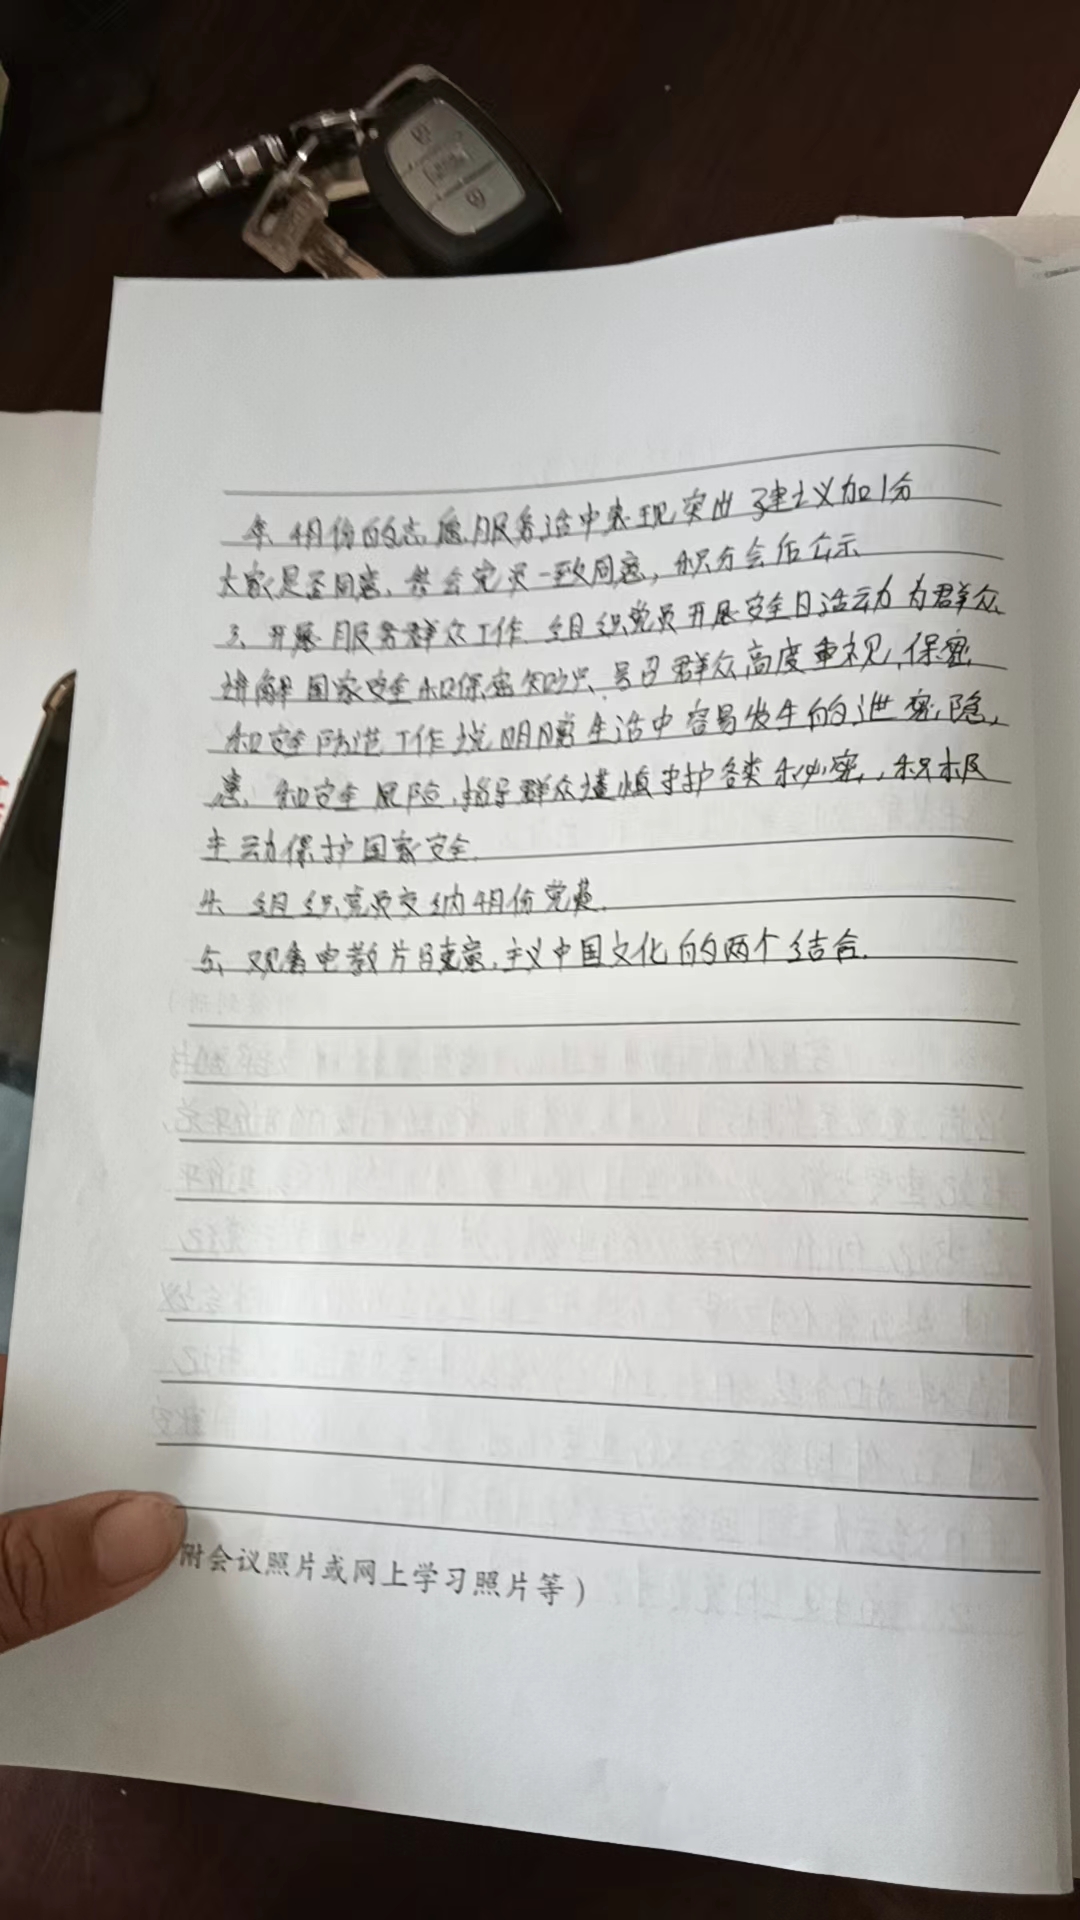 在4月份的志愿服务活中表现突出 建议加1分
大家是否同意,参会党员一致同意,积分会后公示
3、开展服务群众工作.组织党员开展安全日活动为群众
讲解国家安全和保密知识.号召群众高度重视,保密
和安全防范工作 说明日常生活中容易发生的泄密隐
患,和安全风险,指导群众谨慎守护各类秘密,积极
主动保护国家安全.
4、组织党员交纳4月份党费.
5、观看电教片马克思主义中国文化的两个结合.
附会议照片或网上学习照片等)